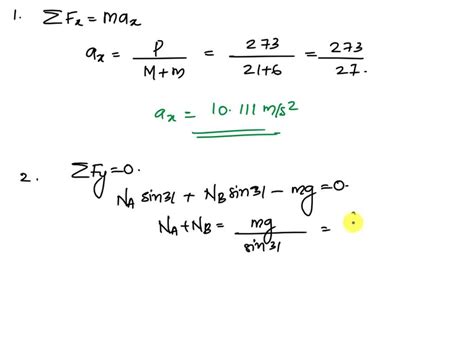 1. ΣFx = max
ax = P / M+m = 273 / 21+6 = 273 / 27.
ax = 10.111 m/s²
2. ΣFy=0.
NA sin31 + NB sin31 - mg =0.
NA+NB = mg / sin31 =